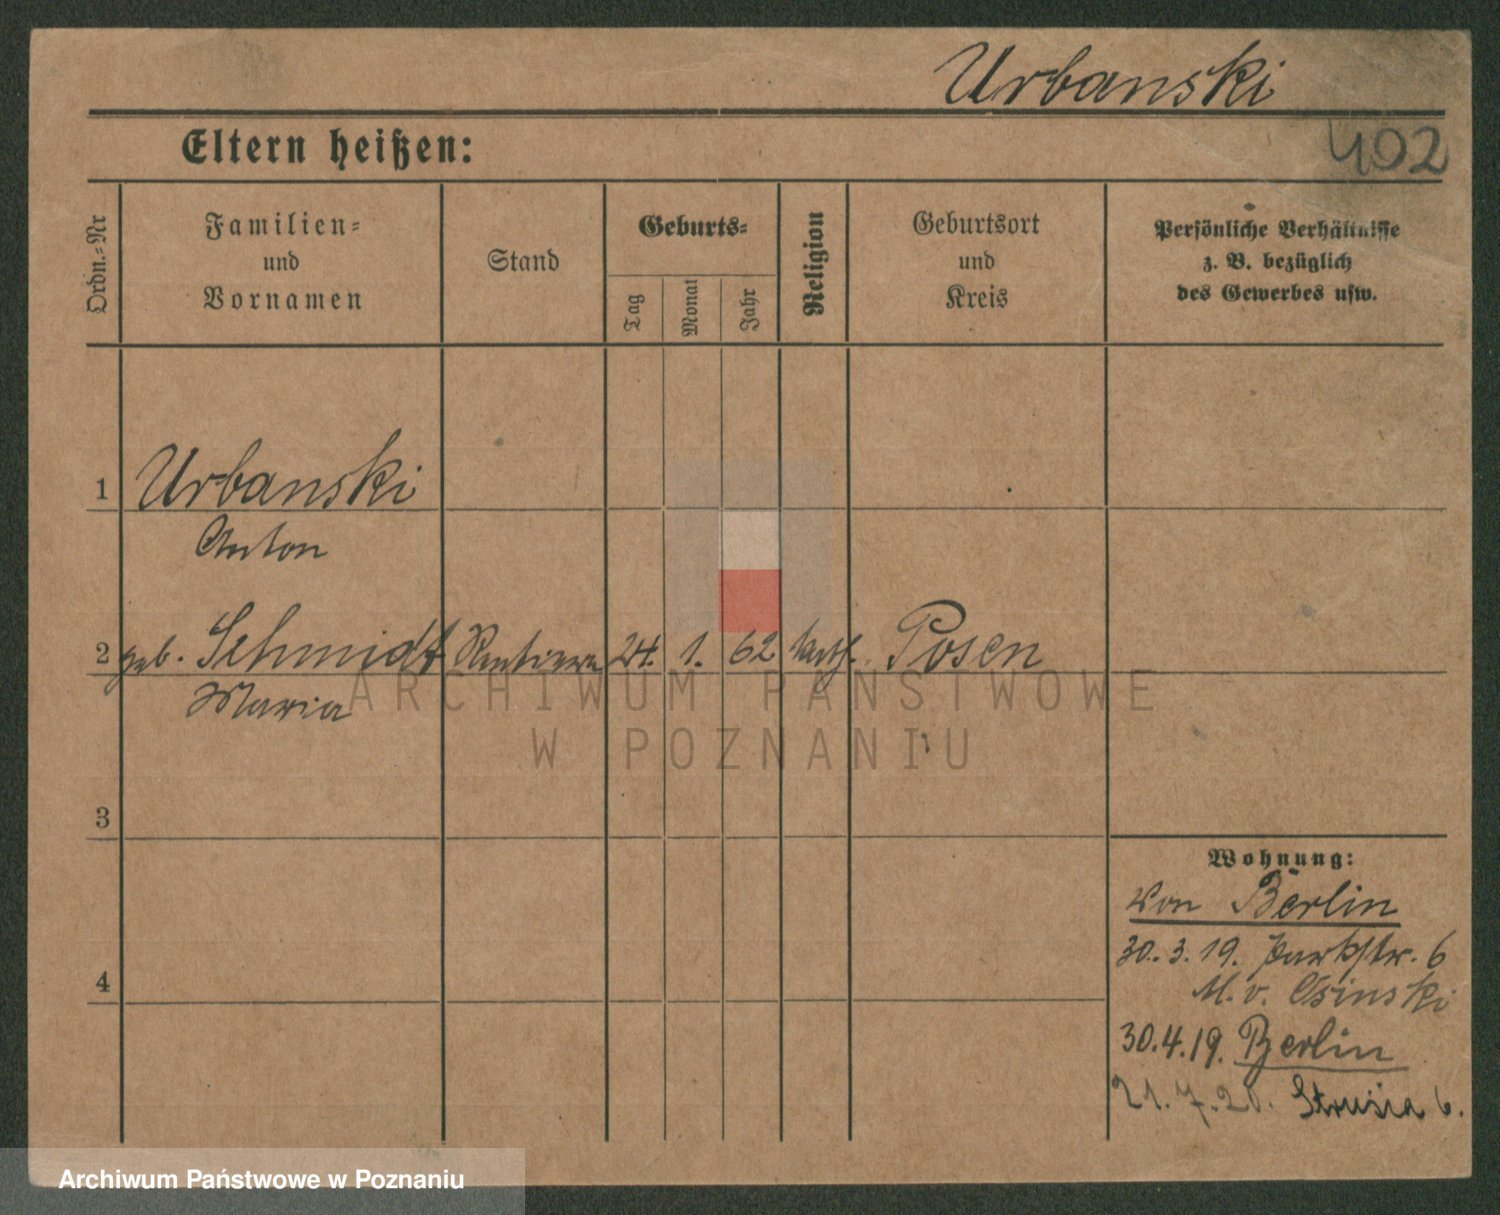 Urbanski
402
Eltern heißen:
Ordn.-Nr
Familien-
und
Vornamen
Stand
Geburts-
Tag
Monat
Jahr
Religion
Geburtsort
und
Kreis
Persönliche Verhältnisse
z. B. bezüglich
des Gewerbes usw.
1 Urbanski
Anton
2 geb. Schmidt Rentiere 24. 1. 62 kath. Posen
Maria
ARCHIWUM PAŃSTWOWE
W POZNANIU
3
Wohnung:
von Berlin
30.3.19. Parkstr. 6
M. v. Osinski
4
30.4.19. Berlin
21.7.20. Strusia 6.
Archiwum Państwowe w Poznaniu